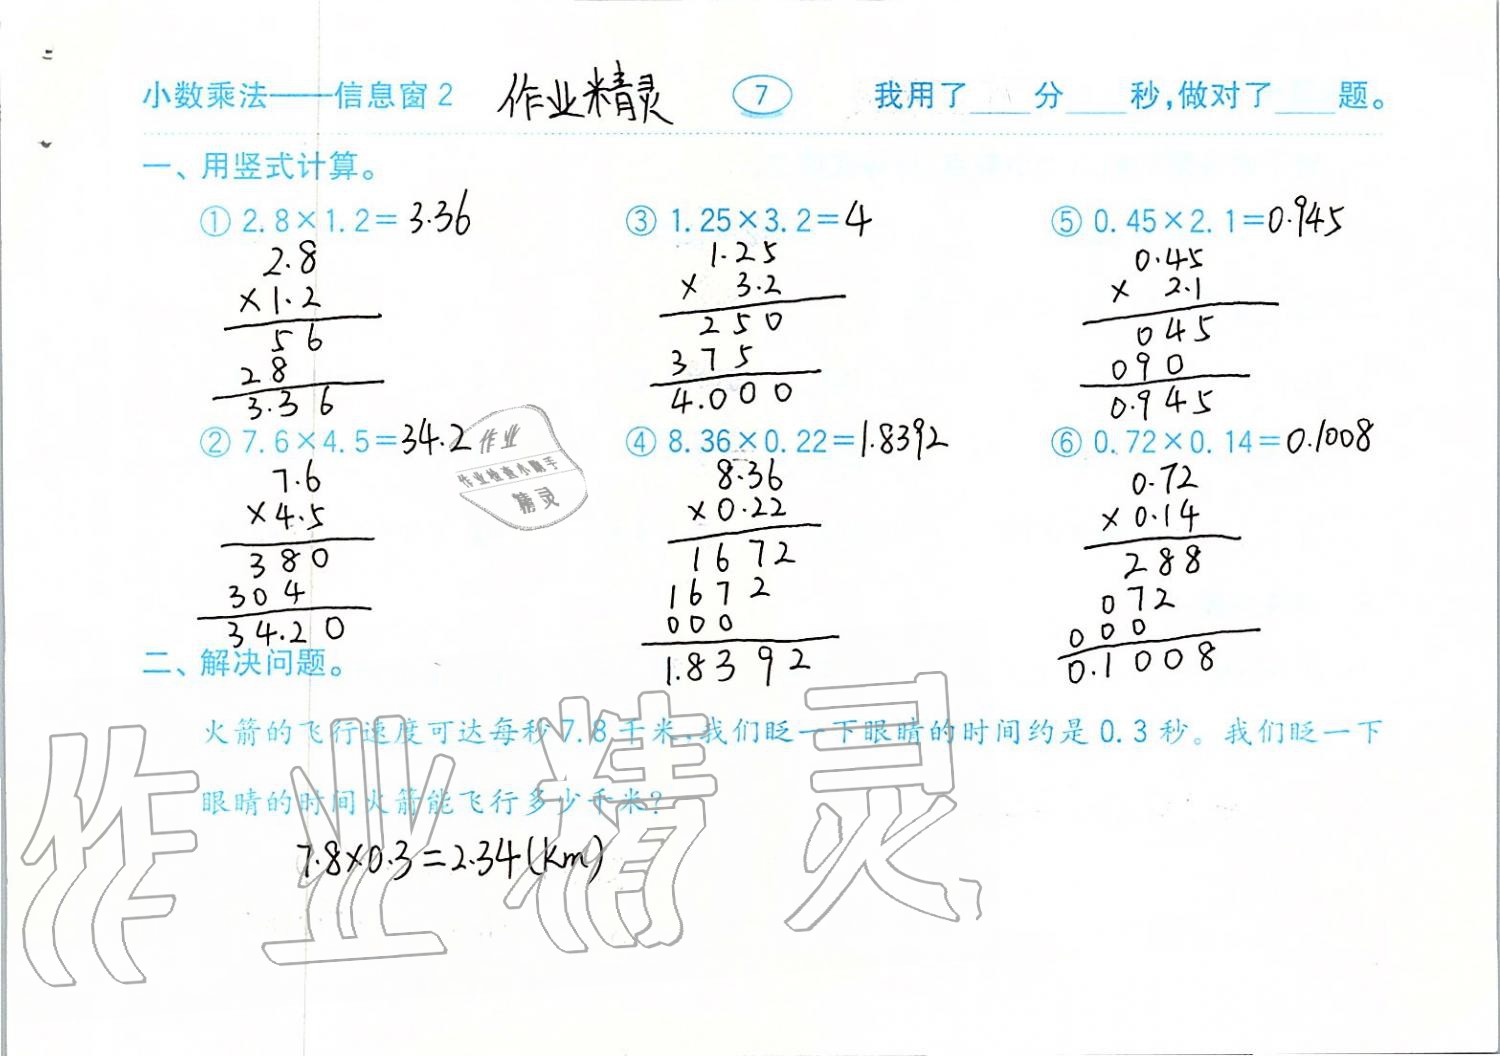 小数乘法——信息窗2 作业精灵 7 我用了____分____秒,做对了____题。
一、用竖式计算。
① 2.8×1.2=3.36 ③ 1.25×3.2=4 ⑤ 0.45×2.1=0.945
2.8 1.25 0.45
×1.2 × 3.2 × 2.1
56 250 045
28 375 090
3.36 4.000 0.945
② 7.6×4.5=34.2 ④ 8.36×0.22=1.8392 ⑥ 0.72×0.14=0.1008
7.6 8.36 0.72
×4.5 ×0.22 ×0.14
380 1672 288
304 1672 072
000 000
34.20 1.8392 0.1008
作业
作业检查小助手
精灵
二、解决问题。
火箭的飞行速度可达每秒7.8千米,我们眨一下眼睛的时间约是0.3秒。我们眨一下
眼睛的时间火箭能飞行多少千米?
7.8×0.3=2.34(km)
作业精灵